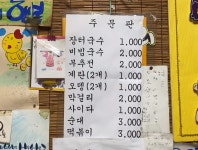 주문판
장터국수 1,000
비빔국수 2,000
부추전 2,000
계란(2개) 1,000
오뎅(2개) 1,000
막걸리 2,000
사이다 1,000
순대 3,000
떡볶이 3,000